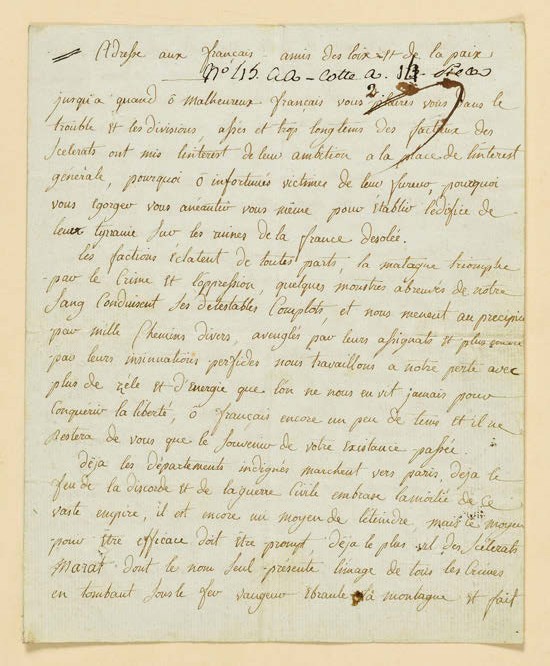 Adresse aux français amis des loix et de la paix
No 413. aa - cotte a.
2
jusqu'a quand ô malheureux français vous plairés vous dans le
trouble et les divisions, assés et trop longtems des factieux des
Scelerats ont mis l'interest de leur ambition a la place de l'interest
générale, pourquoi ô infortunés victimes de leur fureur, pourquoi
vous egorger vous anéantir vous même pour établir l'édifice de
leur tyranie sur les ruines de la france desolée.
les factions éclatent de toutes parts, la montagne triomphe
par le Crime et l'oppression, quelques monstres abreuvés de notre
Sang Conduisent ses detestables Complots, et nous menent au precipice
par mille Chemins divers, aveuglés par leurs assignats et plus encore
par leurs insinuations perfides nous travaillons a notre perte avec
plus de zéle et d'Energie que l'on ne nous en vit jamais pour
Conquérir la liberté, ô français encore un peu de tems et il ne
Restera de vous que le Souvenir de votre Existance passée.
déja les départements indignés marchent vers paris. déja le
feu de la discorde et de la guerre Civile embrase la moitié de ce
vaste empire, il est encore un moyen de l'éteindre, mais ce moyen
pour être efficace doit être prompt. déja le plus vil des Scélerats
Marat dont le nom seul présente l'image de tous les Crimes
en tombant Sous le fer vangeur Ebranle la montagne et fait